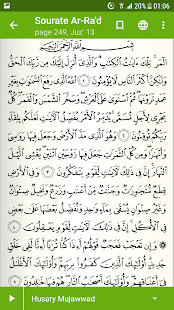 Sourate Ar-Ra'd
page 249, Juz' 13
21%
01:06
بِسْمِ ٱللَّهِ ٱلرَّحْمَٰنِ ٱلرَّحِيمِ
الٓمٓر ۚ تِلْكَ ءَايَٰتُ ٱلْكِتَٰبِ ۗ وَٱلَّذِىٓ أُنزِلَ إِلَيْكَ مِن رَّبِّكَ ٱلْحَقُّ
وَلَٰكِنَّ أَكْثَرَ ٱلنَّاسِ لَا يُؤْمِنُونَ ١ ٱللَّهُ ٱلَّذِى رَفَعَ ٱلسَّمَٰوَٰتِ
بِغَيْرِ عَمَدٍ تَرَوْنَهَا ۖ ثُمَّ ٱسْتَوَىٰ عَلَى ٱلْعَرْشِ ۖ وَسَخَّرَ ٱلشَّمْسَ
وَٱلْقَمَرَ ۖ كُلٌّ يَجْرِى لِأَجَلٍ مُّسَمًّى ۚ يُدَبِّرُ ٱلْأَمْرَ يُفَصِّلُ ٱلْءَايَٰتِ
لَعَلَّكُم بِلِقَآءِ رَبِّكُمْ تُوقِنُونَ ٢ وَهُوَ ٱلَّذِى مَدَّ ٱلْأَرْضَ
وَجَعَلَ فِيهَا رَوَٰسِىَ وَأَنْهَٰرًا ۖ وَمِن كُلِّ ٱلثَّمَرَٰتِ جَعَلَ فِيهَا زَوْجَيْنِ
ٱثْنَيْنِ ۖ يُغْشِى ٱلَّيْلَ ٱلنَّهَارَ ۚ إِنَّ فِى ذَٰلِكَ لَءَايَٰتٍ لِّقَوْمٍ يَتَفَكَّرُونَ
٣ وَفِى ٱلْأَرْضِ قِطَعٌ مُّتَجَٰوِرَٰتٌ وَجَنَّٰتٌ مِّنْ أَعْنَٰبٍ وَزَرْعٌ
وَنَخِيلٌ صِنْوَانٌ وَغَيْرُ صِنْوَانٍ يُسْقَىٰ بِمَآءٍ وَٰحِدٍ وَنُفَضِّلُ
بَعْضَهَا عَلَىٰ بَعْضٍ فِى ٱلْأُكُلِ ۚ إِنَّ فِى ذَٰلِكَ لَءَايَٰتٍ لِّقَوْمٍ
يَعْقِلُونَ ٤ ۞ وَإِن تَعْجَبْ فَعَجَبٌ قَوْلُهُمْ أَءِذَا كُنَّا تُرَٰبًا
أَءِنَّا لَفِى خَلْقٍ جَدِيدٍ ۗ أُو۟لَٰٓئِكَ ٱلَّذِينَ كَفَرُوا۟ بِرَبِّهِمْ ۖ وَأُو۟لَٰٓئِكَ
ٱلْأَغْلَٰلُ فِىٓ أَعْنَاقِهِمْ ۖ وَأُو۟لَٰٓئِكَ أَصْحَٰبُ ٱلنَّارِ ۖ هُمْ فِيهَا خَٰلِدُونَ
Husary Mujawwad